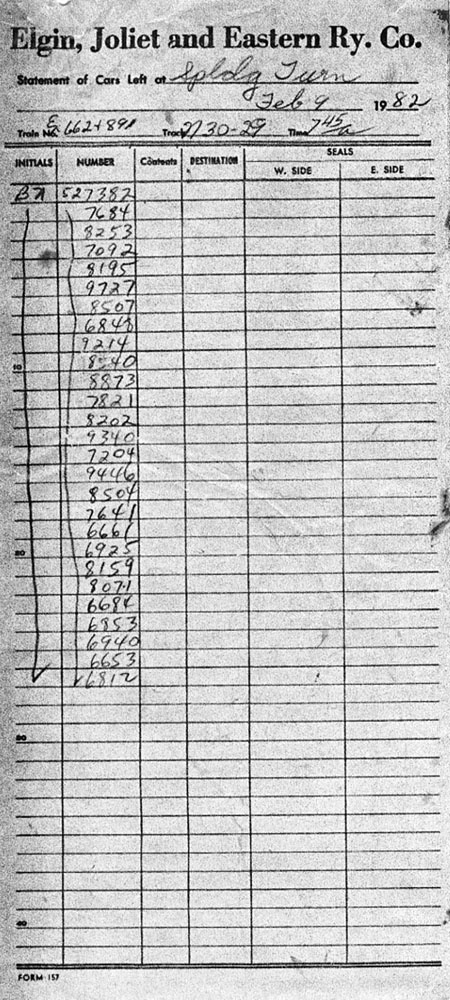 Elgin, Joliet and Eastern Ry. Co.
Statement of Cars Left at Spldg Turn
Feb 9 1982
Train No. E 662+891 Track 2730-29 Time 7 45 a
SEALS
INITIALS NUMBER Contents DESTINATION W. SIDE E. SIDE
BN 527382
7684
8253
7092
8195
9727
8507
6848
9214
10 8540
8873
7821
8202
9340
7204
9446
8504
7641
6661
20 6925
8159
8071
6684
6853
6940
6653
6812
30
40
FORM 157